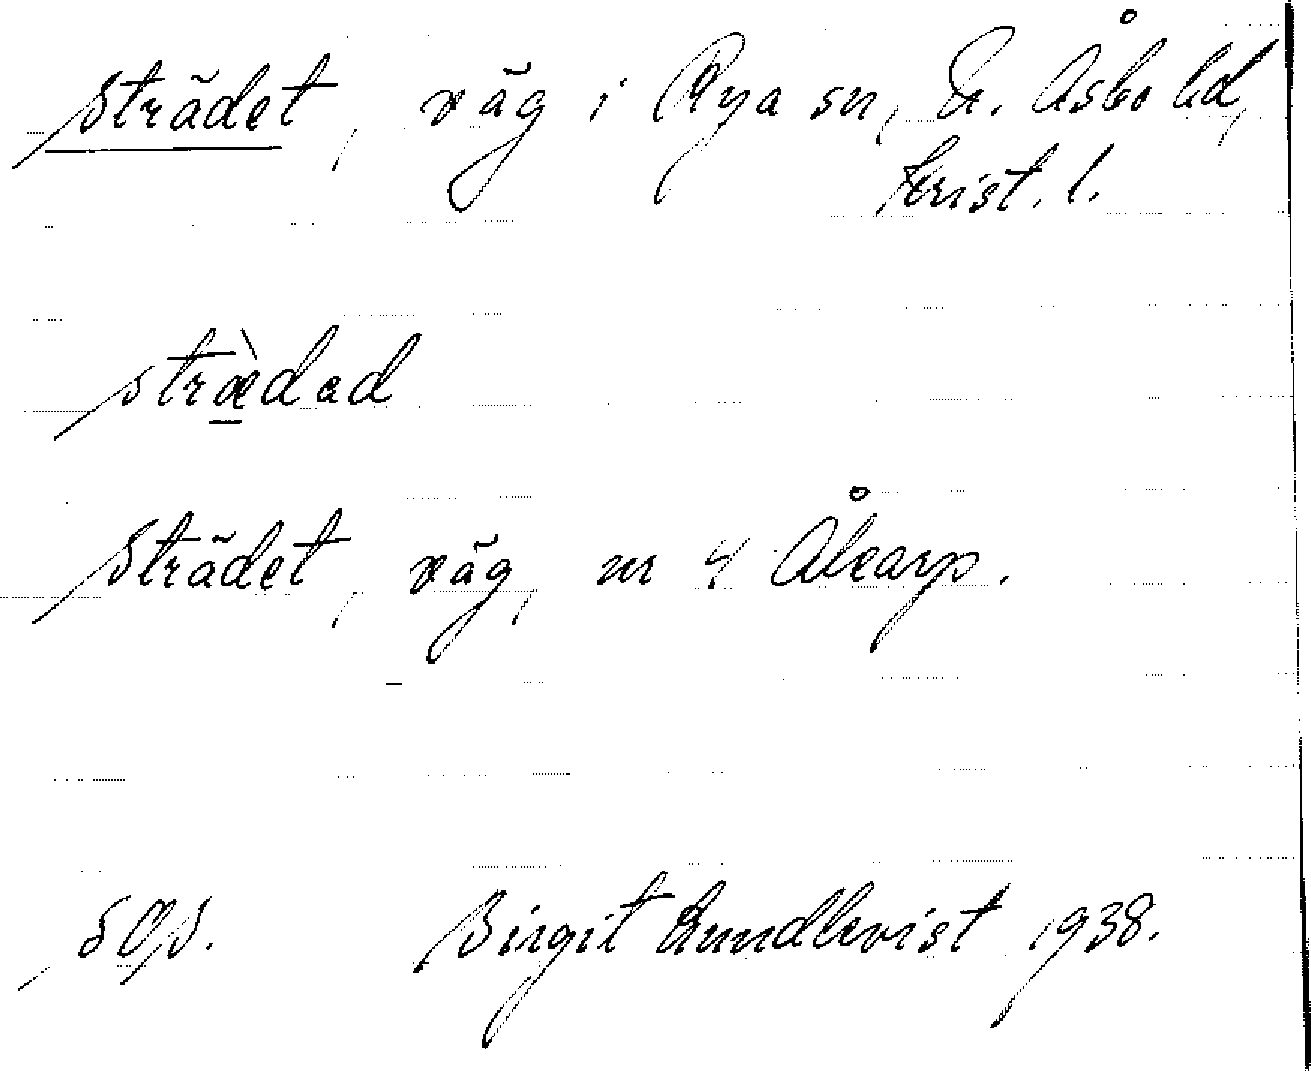 Strädet, väg i Rya sn, N. Åsbo hd,
Krist. l.
stræ̀dəd
Strädet, väg, nr 4 Åkarp.
SOS. Birgit Lundkvist 1938.